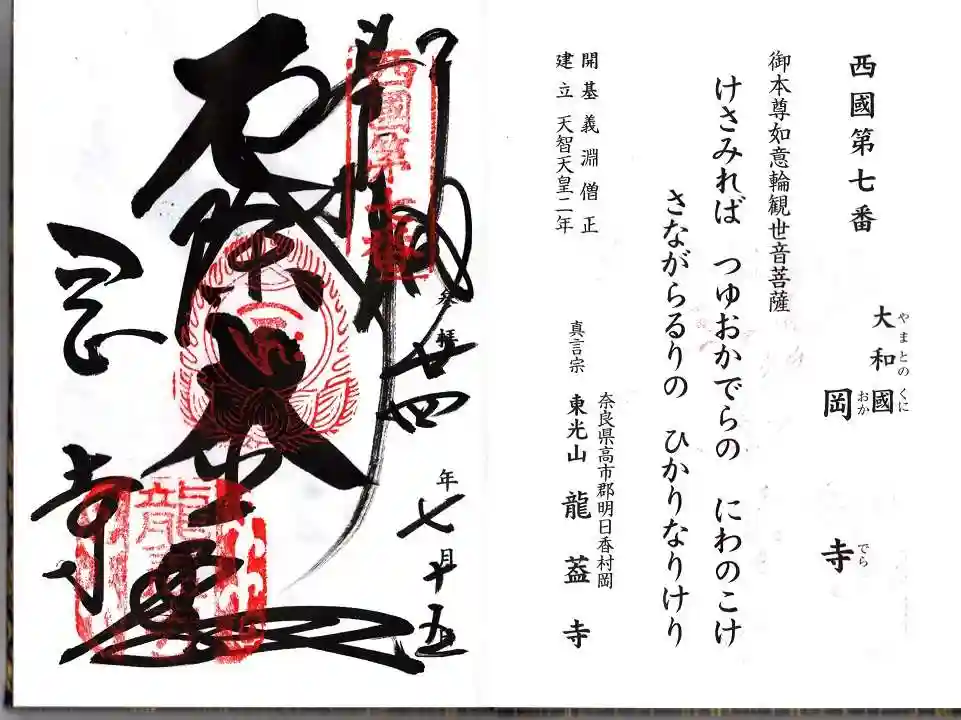 西國第七番
大和國
やまとの くに
岡寺
おか でら
御本尊如意輪観世音菩薩
けさみれば つゆおかでらの にわのこけ
さながらるりの ひかりなりけり
開基 義淵僧正
建立 天智天皇二年
奈良県高市郡明日香村岡
真言宗 東光山 龍蓋寺
西國第七番
参拝 廿四年七月十五
岡寺
龍